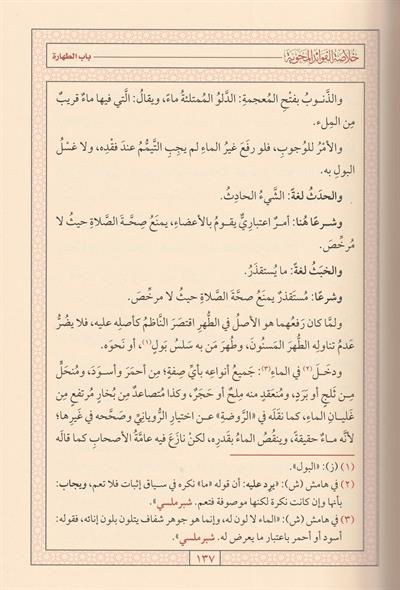 خلاصة الفوائد المحوية
باب الطهارة
والذَّنوبُ بفتْحِ المُعجمةِ: الدَّلوُ المُمتلئةُ ماءً، ويقالُ: الَّتي فيها ماءٌ قريبٌ
مِن المِلء.
والأمْرُ للوُجوبِ، فلو رفَعَ غيرُ الماءِ لم يجِبِ التَّيمُّمُ عندَ فقْدِه، ولا غسْلُ
البولِ به.
والحدَثُ لغةً: الشَّيءُ الحادِثُ.
وشرعًا هُنا: أمرٌ اعتباريٌّ يقومُ بالأعضاءِ، يمنَعُ صِحَّةَ الصَّلاةِ حيثُ لا
مُرخِّصَ.
والخبَثُ لغةً: ما يُستقذَرُ.
وشرعًا: مُستقذَرٌ يمنعُ صحَّةَ الصَّلاةِ حيثُ لا مرخِّصَ.
ولمَّا كان رَفعُهما هو الأصلُ في الطُّهرِ اقتصَرَ النَّاظمُ كأصلِه عليه، فلا يضُرُّ
عَدمُ تناولِه الطُّهرَ المَسنُونَ، وطُهرَ مَن به سَلسُ بَولٍ(١)، أو نَحوُه.
ودخلَ(٢) في الماءِ(٣): جَميعُ أنواعِه بأيِّ صِفةٍ؛ مِن أحمَرَ وأسوَدَ، ومُنحَلٍّ
مِن ثَلجٍ أو بَرَدٍ، ومُنعَقدٍ منه مِلحٌ أو حَجَرٌ، وكذا مُتصاعدٌ مِن بُخارٍ مُرتفعٍ مِن
غَليَانِ الماءِ، كما نقَلَه في «الرَّوضةِ» عن اختيارِ الرُّويانيِّ وصَحَّحه في غَيرِها؛
لأنَّه مَاءٌ حقيقةً، وينقُصُ الماءُ بقَدرِه، لكنْ نازَعَ فيه عامَّةُ الأصحابِ كما قالَه
(١) (ز): «البول».
(٢) في هامش (ش): «يرد عليه: أن قوله «ما» نكره في سياق إثبات فلا تعم، ويجاب:
بأنها وإن كانت نكرة لكنها موصوفة فتعم. شبرملسي».
(٣) في هامش (ش): «الماء لا لون له، وإنما هو جوهر شفاف يتلون بلون إنائه، فقوله:
أسود أو أحمر باعتبار ما يعرض له. شبرملسي».
١٣٧